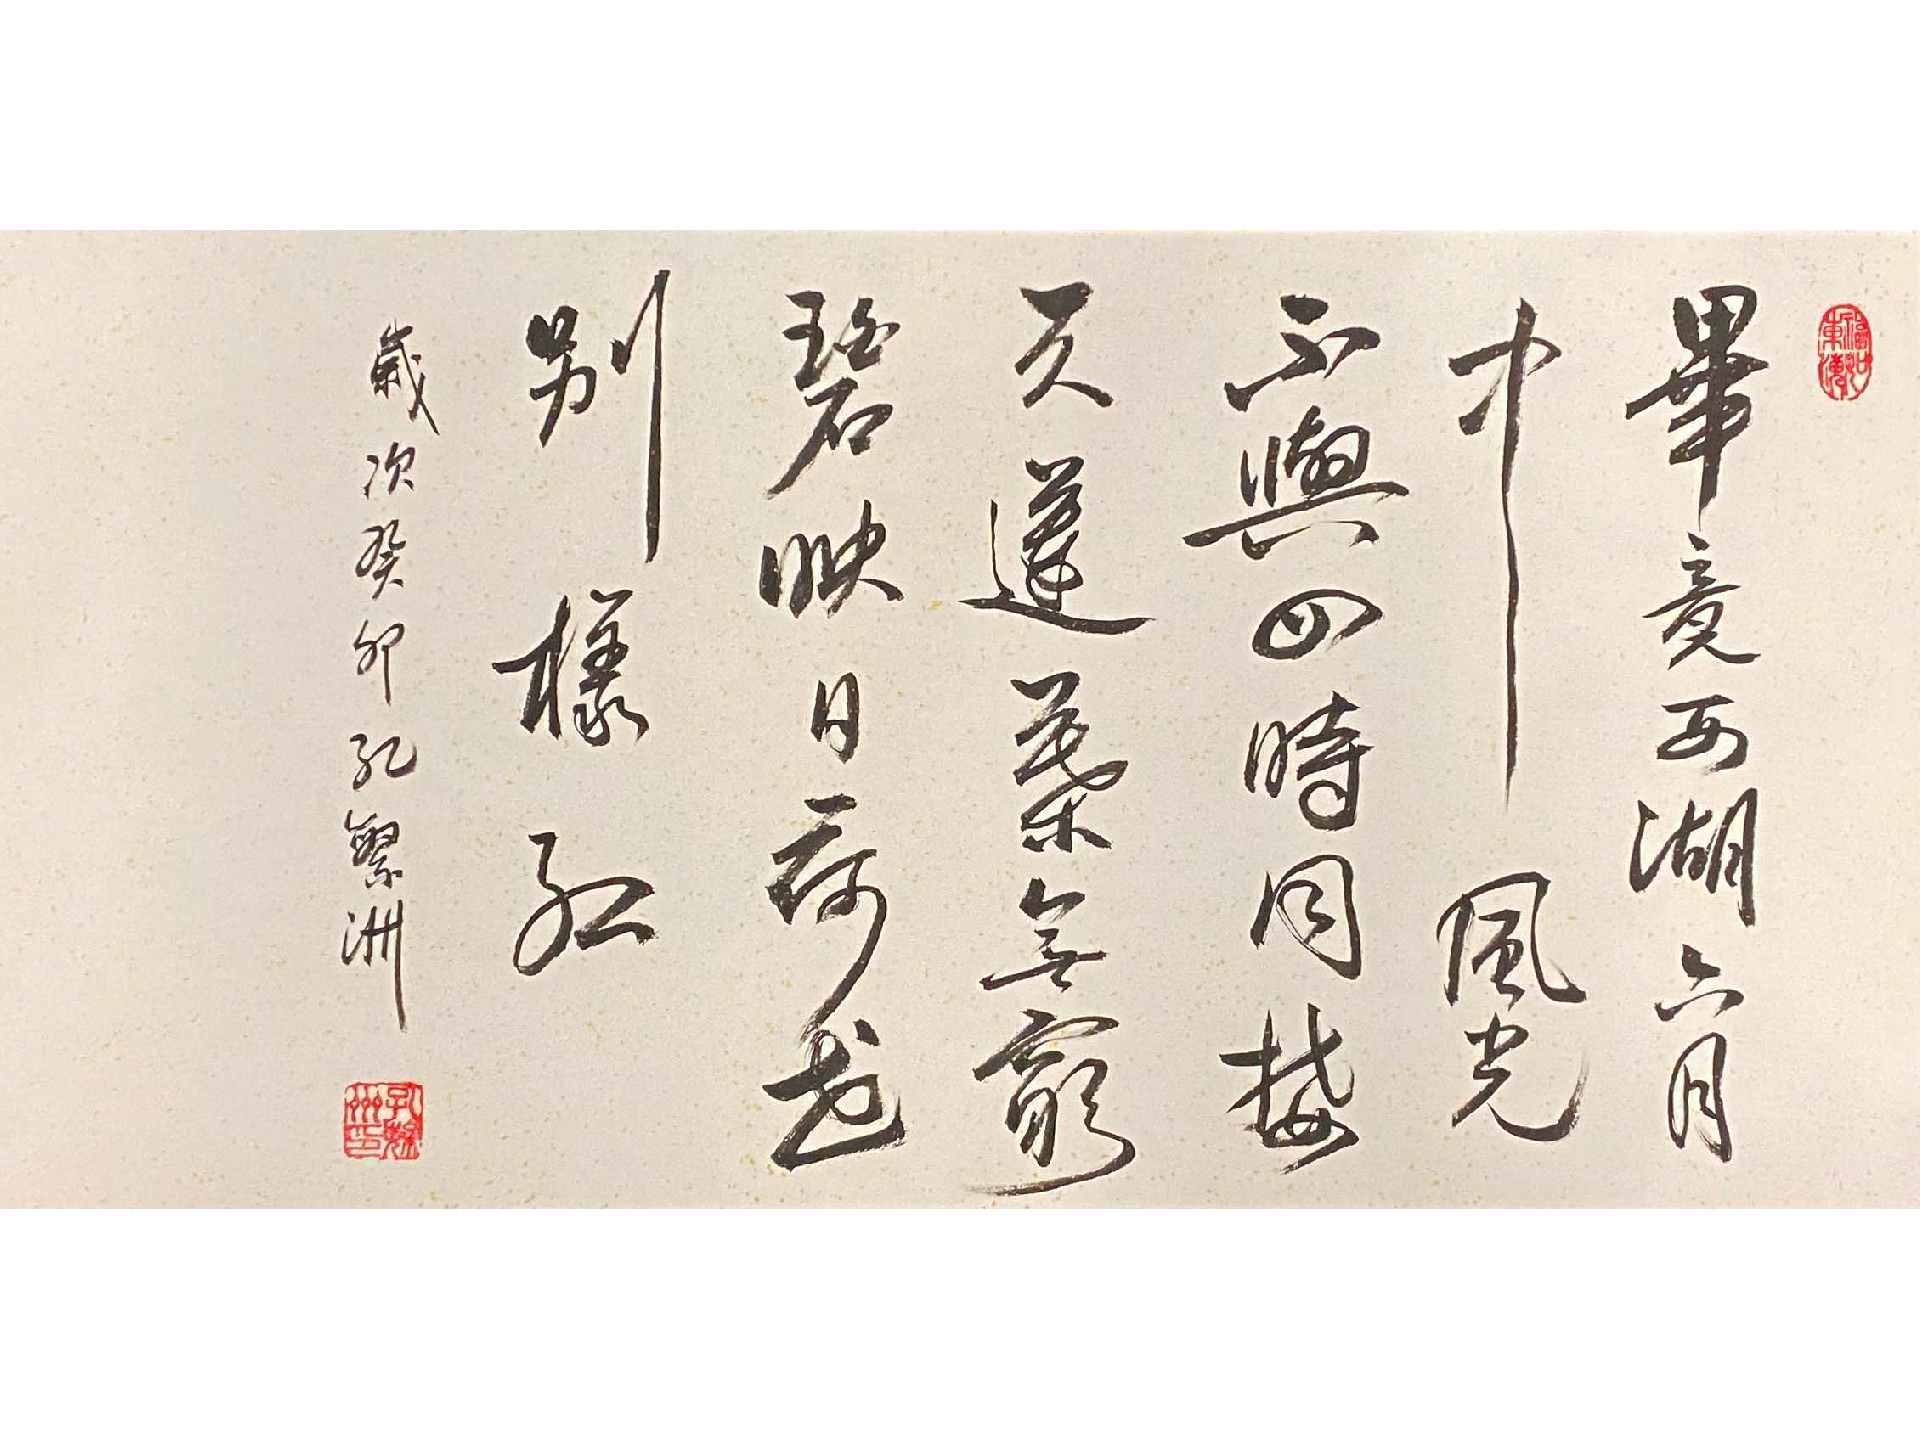 福如東海
畢竟西湖六月
中風光
不與四時同接
天蓮葉無窮
碧映日荷花
別樣紅
歲次癸卯孔繁洲